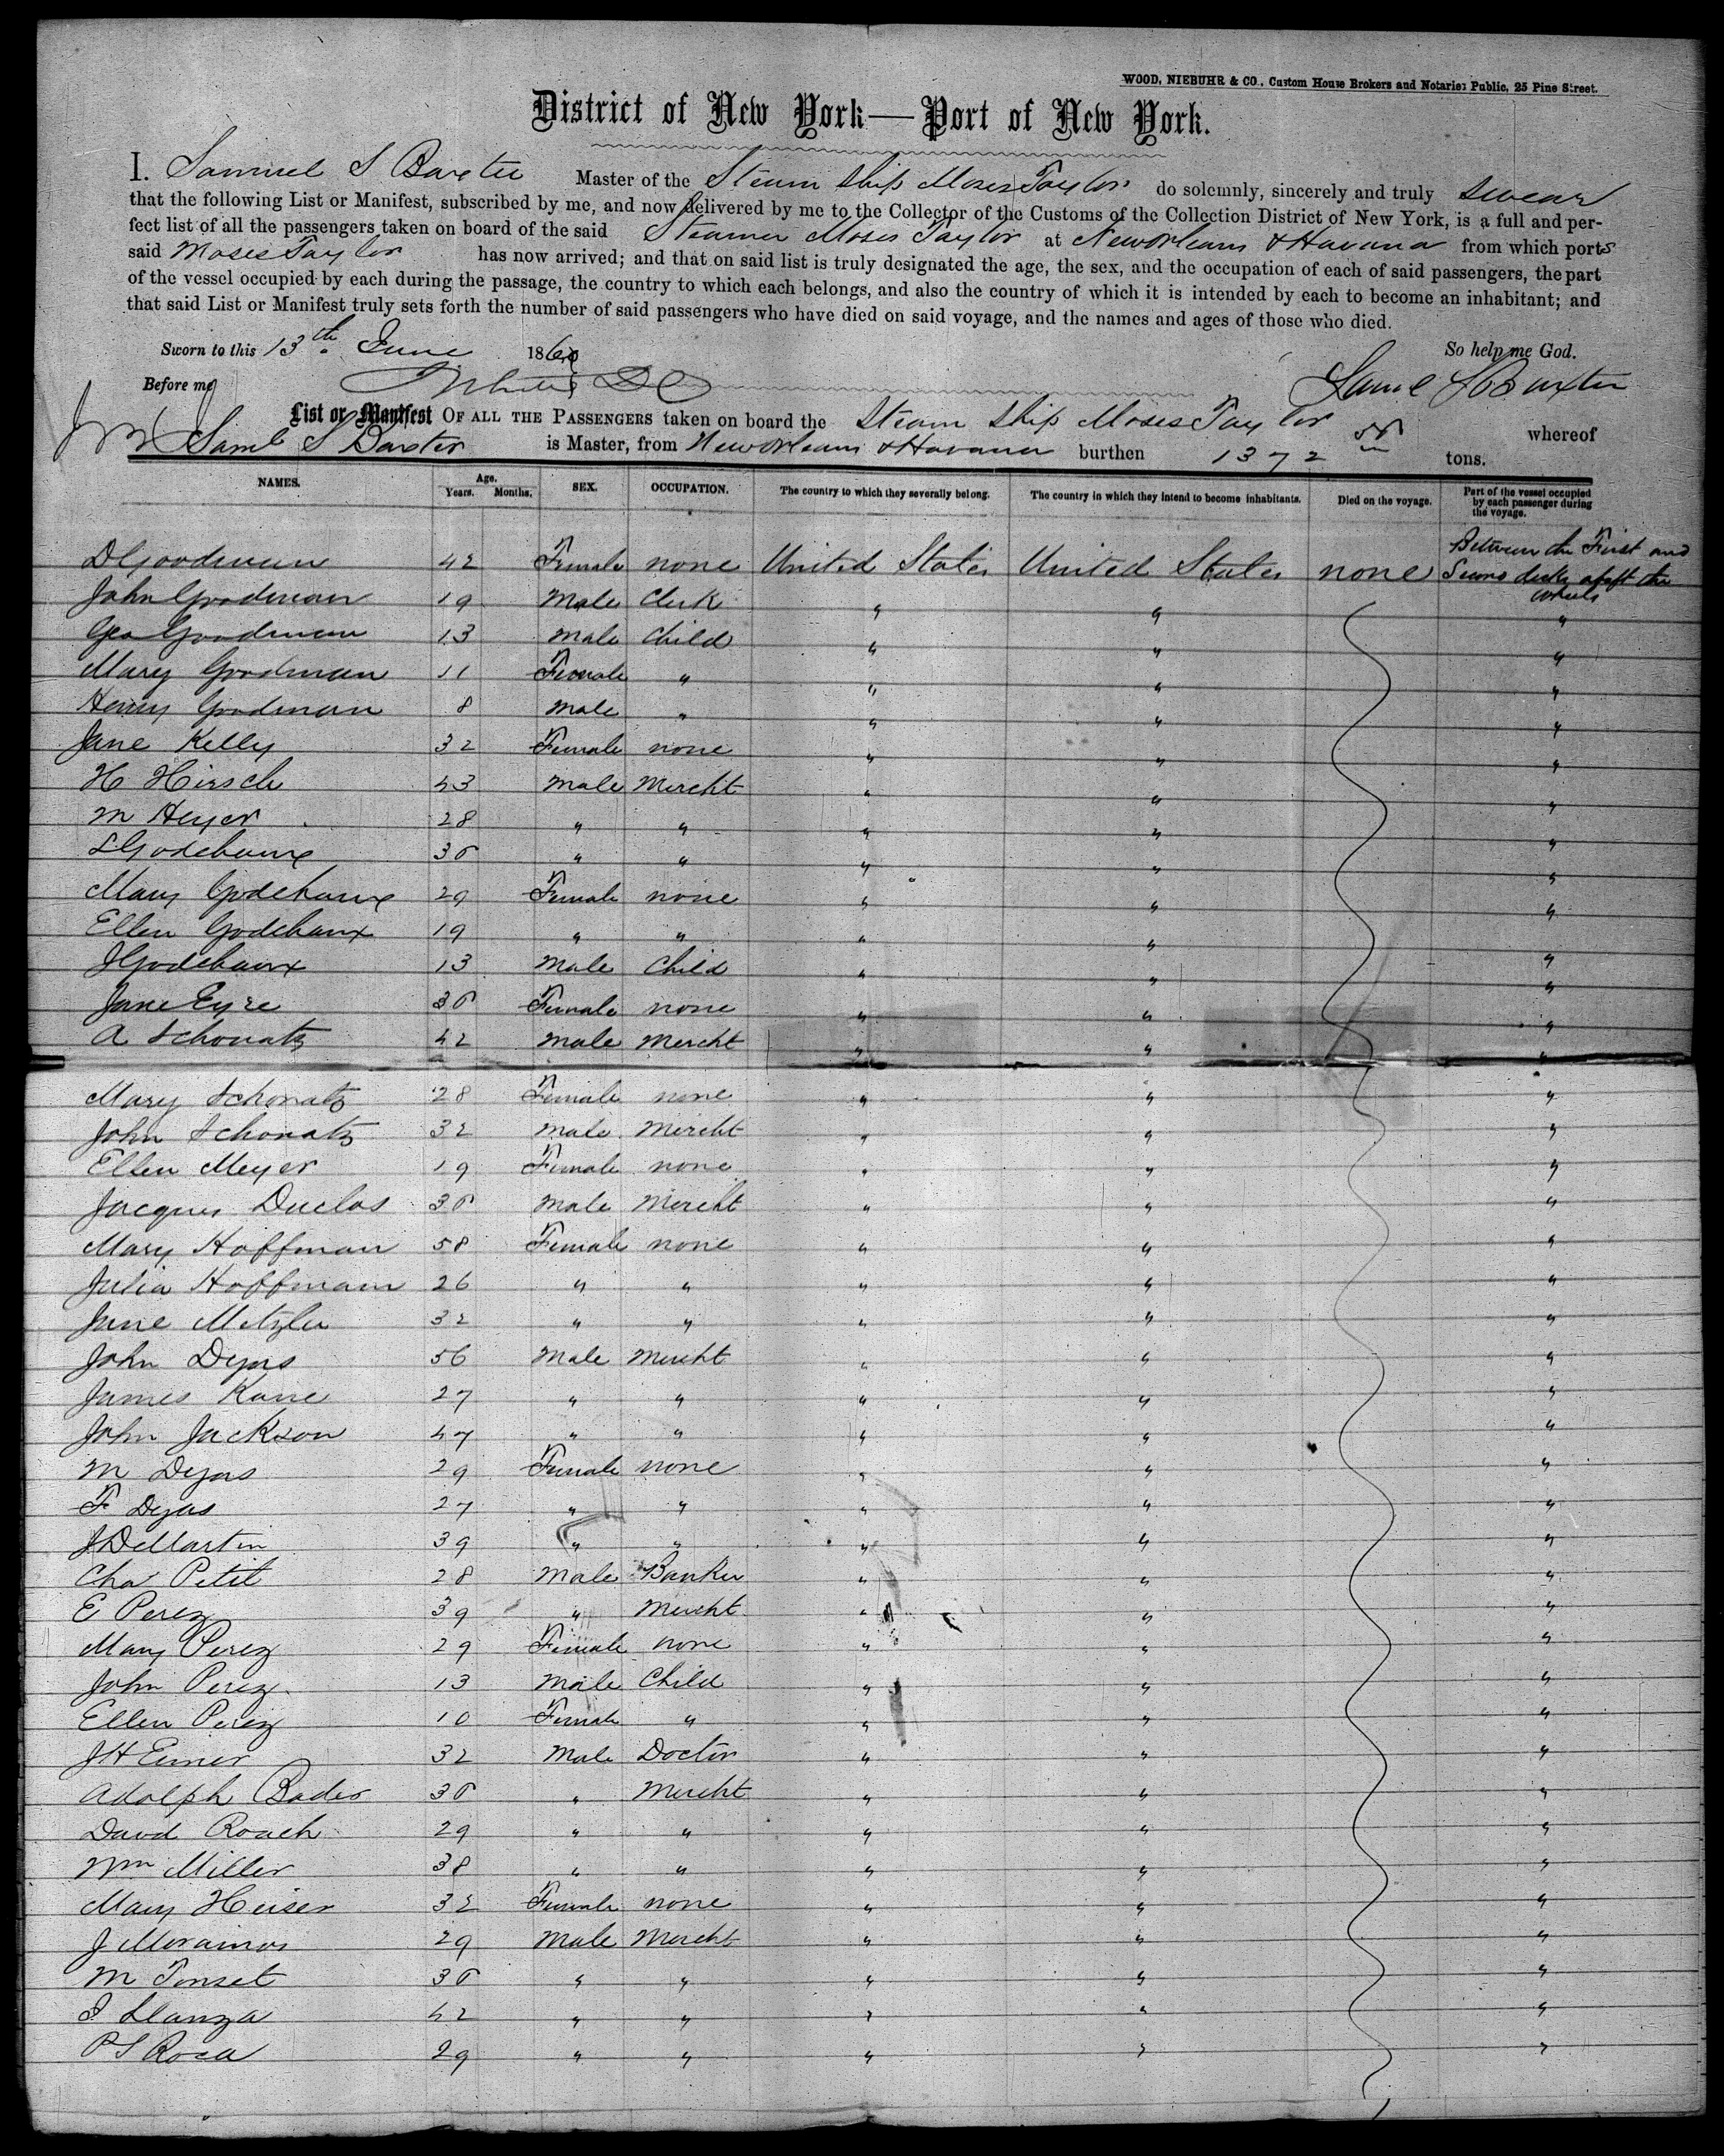 WOOD, NIEBUHR & CO., Custom House Brokers and Notaries Public, 25 Pine Street.
District of New York—Port of New York.
I. Samuel S Baxter Master of the Steam Ship Moses Taylor do solemnly, sincerely and truly swear
that the following List or Manifest, subscribed by me, and now delivered by me to the Collector of the Customs of the Collection District of New York, is a full and per-
fect list of all the passengers taken on board of the said Steamer Moses Taylor at New Orleans & Havana from which ports
said Moses Taylor has now arrived; and that on said list is truly designated the age, the sex, and the occupation of each of said passengers, the part
of the vessel occupied by each during the passage, the country to which each belongs, and also the country of which it is intended by each to become an inhabitant; and
that said List or Manifest truly sets forth the number of said passengers who have died on said voyage, and the names and ages of those who died.
Sworn to this 13th June 1860 So help me God.
Before me Saml S Baxter
List or Manifest OF ALL THE PASSENGERS taken on board the Steam Ship Moses Taylor whereof
Saml S Baxter is Master, from New Orleans & Havana burthen 1372 tons.
NAMES. Age. Years. Months. SEX. OCCUPATION. The country to which they severally belong. The country in which they intend to become inhabitants. Died on the voyage. Part of the vessel occupied by each passenger during the voyage.
D Goodman 42 Female none United States United States none Between the First and Second decks abaft the wheels
John Goodman 19 Male Clerk " " "
Geo Goodman 13 Male Child " " "
Mary Goodman 11 Female " " " "
Henry Goodman 8 Male " " " "
Jane Kelly 32 Female none " " "
H Hirsch 43 Male Mercht " " "
M Heyer 28 " " " " "
L Godchaux 35 " " " " "
Mary Godchaux 29 Female none " " "
Ellen Godchaux 19 " " " " "
J Godchaux 13 Male Child " " "
Jane Eyre 35 Female none " " "
A Schonatz 42 Male Mercht " " "
Mary Schonatz 28 Female none " " "
John Schonatz 32 Male Mercht " " "
Ellen Meyer 19 Female none " " "
Jacques Duclos 35 Male Mercht " " "
Mary Hoffman 58 Female none " " "
Julia Hoffmann 26 " " " " "
Jane Metzler 32 " " " " "
John Dyas 56 Male Mercht " " "
James Kane 27 " " " " "
John Jackson 47 " " " " "
M Dyas 29 Female none " " "
F Dyas 27 " " " " "
J DeMartin 39 " " " " "
Chas Petit 28 Male Banker " " "
E Perez 39 " Mercht " " "
Mary Perez 29 Female none " " "
John Perez 13 Male Child " " "
Ellen Perez 10 Female " " " "
J H Eimer 32 Male Doctor " " "
Adolph Bader 35 " Mercht " " "
David Roach 29 " " " " "
Wm Miller 38 " " " " "
Mary Heiser 32 Female none " " "
J 29 Male Mercht " " "
M Tonset 35 " " " " "
J Llanza 42 " " " " "
P S Roca 29 " " " " "